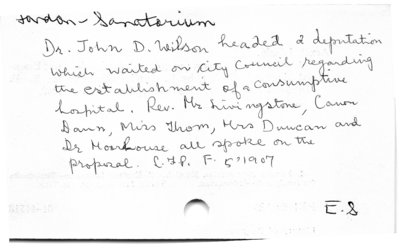 London - Sanatorium
Dr. John D. Wilson headed a deputation
which waited on City Council regarding
the establishment of a consumptive
hospital. Rev. Mr Livingstone, Canon
Dann, Miss Thom, Mrs Duncan and
Dr Moorhouse all spoke on the
proposal. C.F.P. F. 5, 1907
E.S